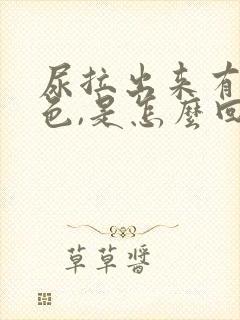 尿拉出来有
色,是怎麼回
草草醬